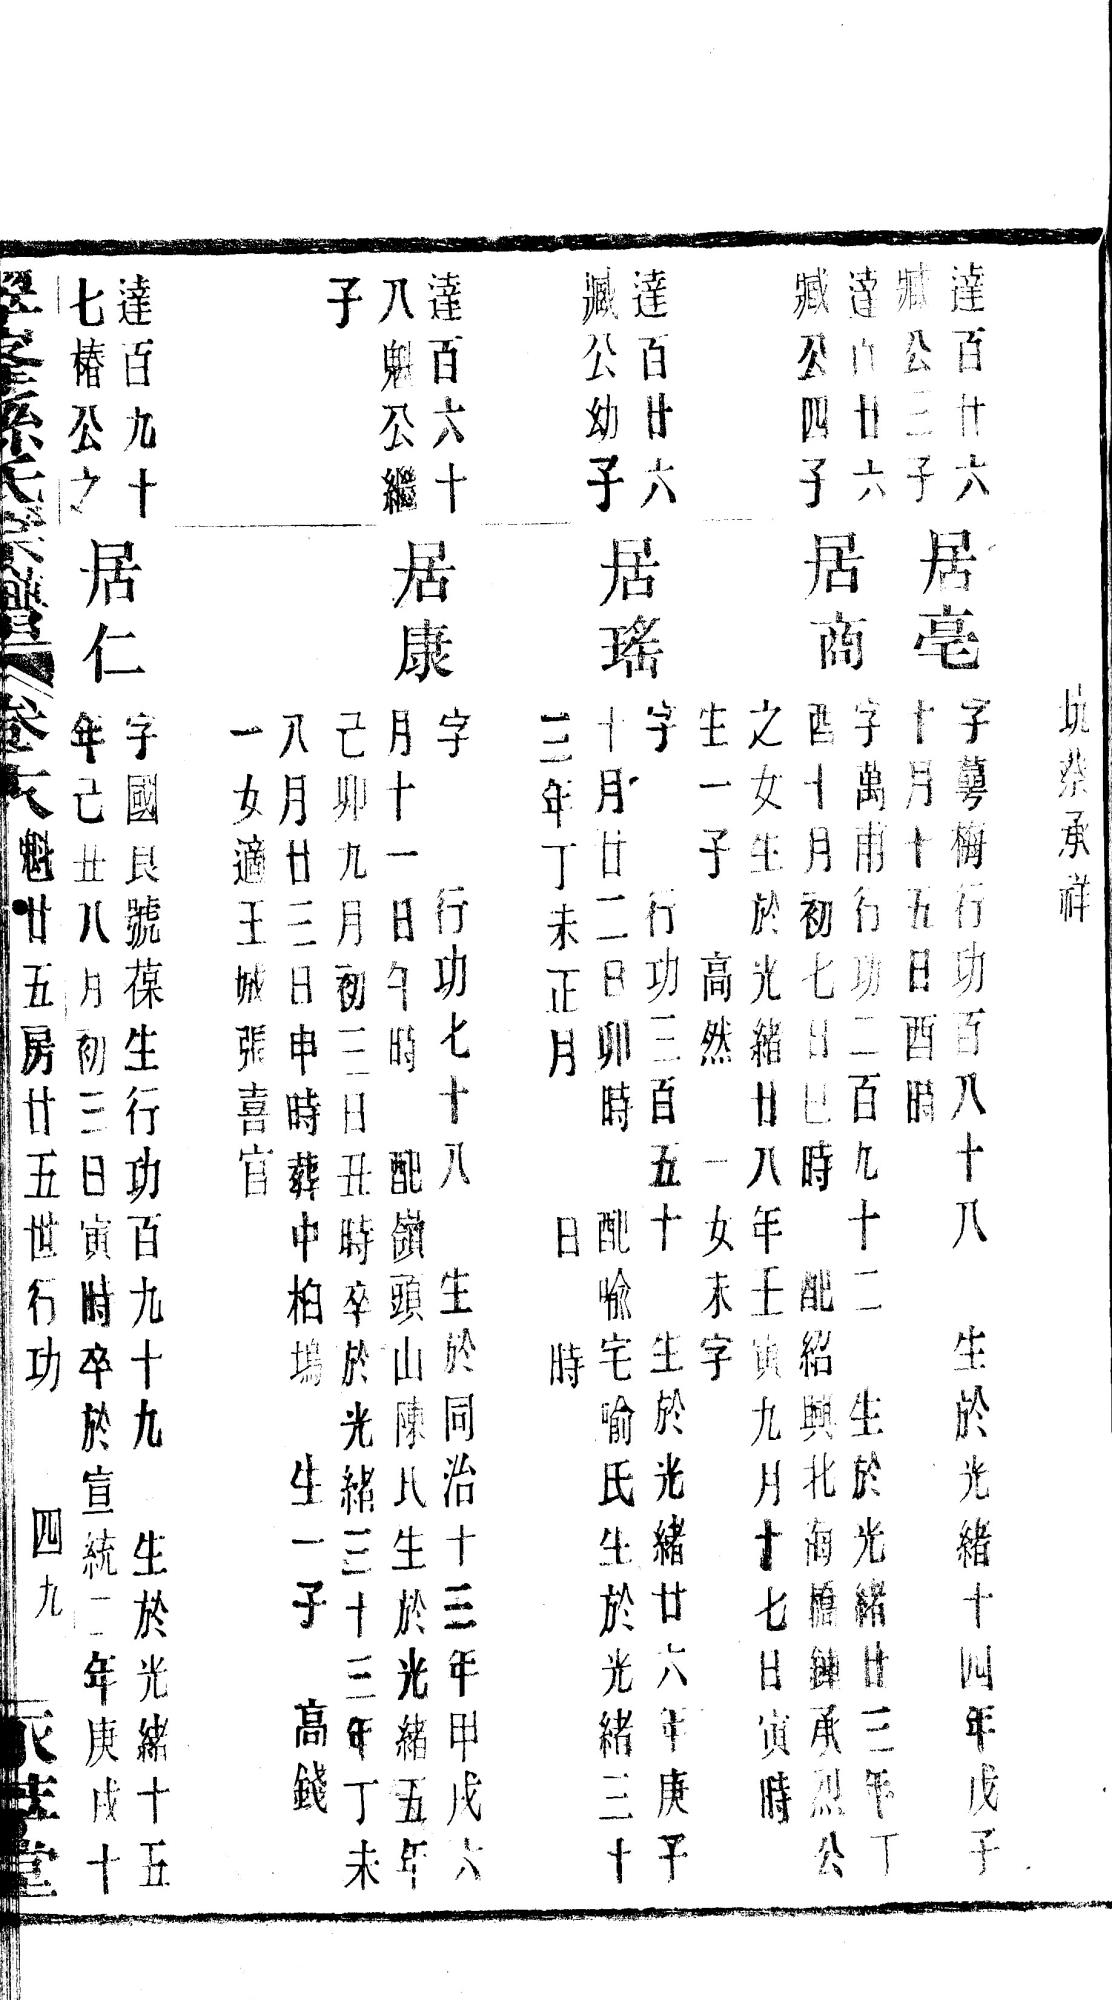 坑蔡承祥
達百廿六
臧公三子
居亳
字萼梅行功百八十八 生於光緒十四年戊子
十月十五日酉時
達百廿六
臧公四子
居商
字萬甫行功二百九十二 生於光緒廿三年丁
酉十月初七日巳時 配紹興北海橋鍾承烈公
之女生於光緒廿八年壬寅九月十七日寅時
生一子 高然 一女未字
達百廿六
臧公幼子
居瑤
字 行功三百五十 生於光緒廿六年庚子
十月廿二日卯時 配喻宅喻氏生於光緒三十
三年丁未正月 日 時
達百六十
八魁公繼
子
居康
字 行功七十八 生於同治十三年甲戌六
月十一日午時 配嶺頭山陳氏生於光緒五年
己卯九月初三日丑時卒於光緒三十三年丁未
八月廿三日申時葬中柏塢 生一子 高錢
一女適王城張喜官
達百九十
七椿公之
居仁
字國良號葆生行功百九十九 生於光緒十五
年己丑八月初三日寅時卒於宣統二年庚戌十
孫氏宗譜 卷 魁廿五房廿五世行功 四九 堂